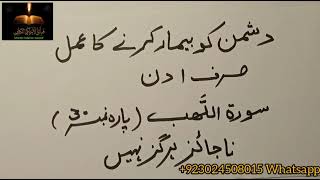 دشمن کو بیمار کرنے کا عمل
صرف 1 دن
سورۃ اللَّھب (پارہ نمبر 30)
ناجائز ہرگز نہیں
+923024508015 Whatsapp